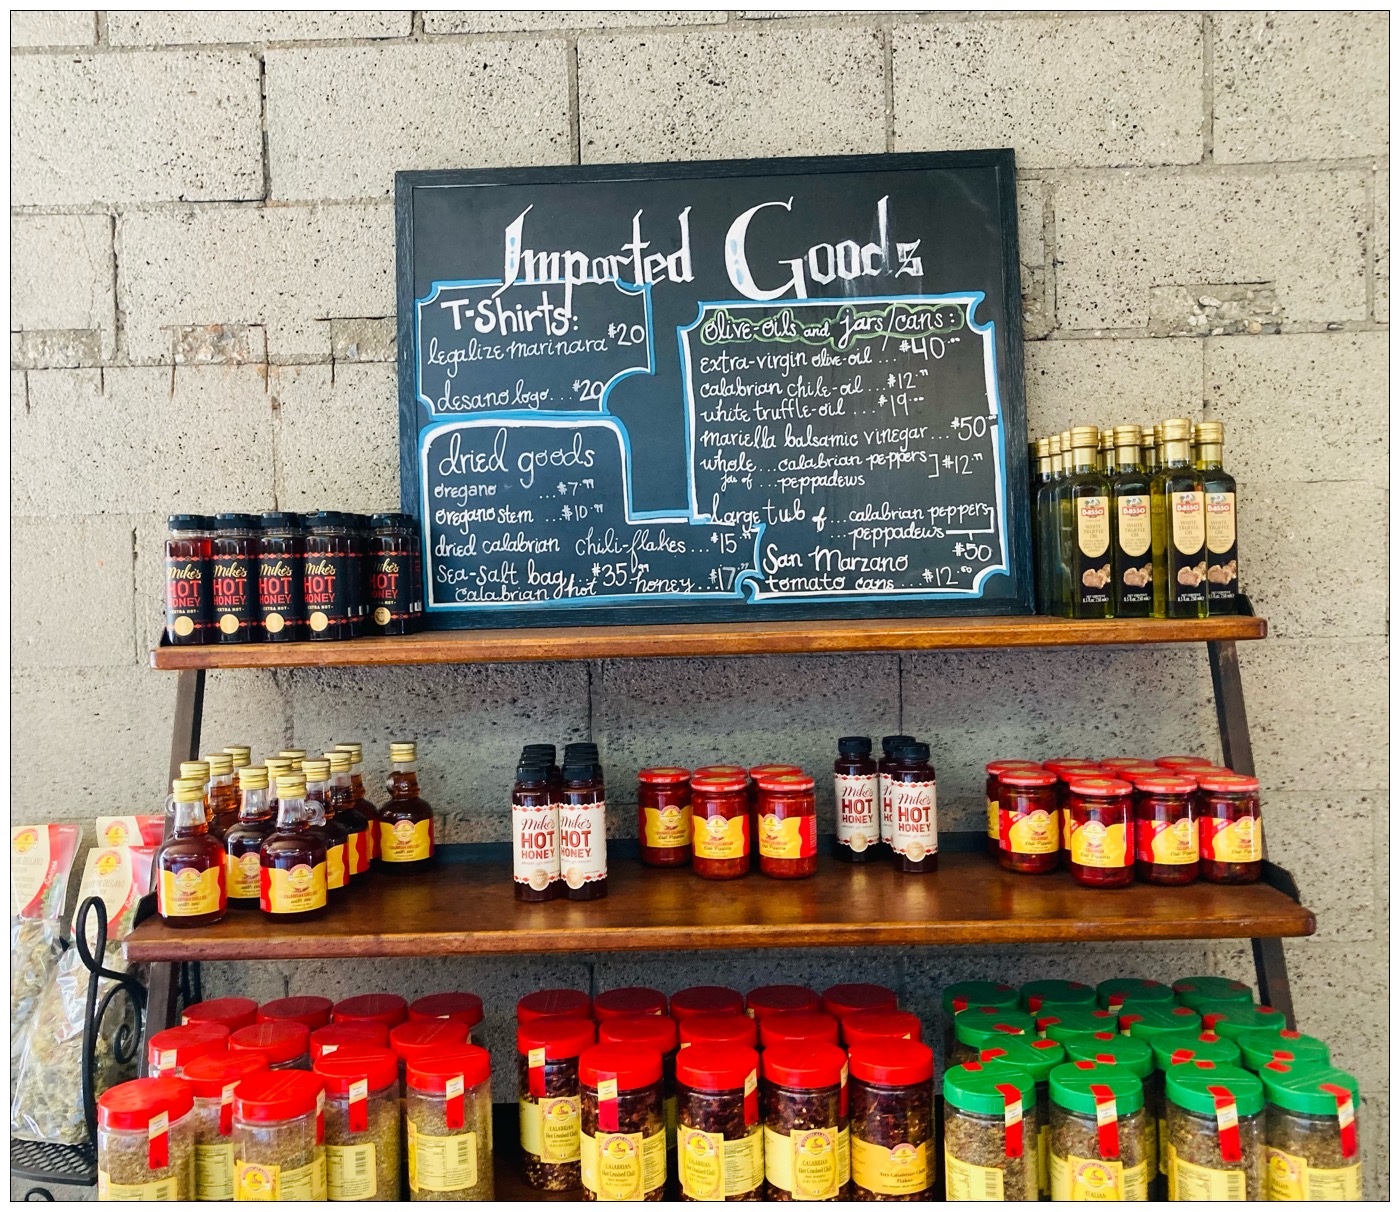 Imported Goods
T-Shirts:
legalize marinara $20
desano logo...$20
dried goods
oregano ...$7.99
oregano stem ...$10.99
dried calabrian chili-flakes...$15.99
sea-salt bag...$35.99
calabrian hot honey...$17.99
olive-oils and jars/cans:
extra-virgin olive-oil ...$40.00
calabrian chile-oil ...$12.99
white truffle-oil ....$19.00
mariella balsamic vinegar...$50.00
whole ...calabrian peppers ]$12.99
jar of ...peppadews
Large tub of ...calabrian peppers
...peppadews
$50
San Marzano
tomato cans ...$12.00
Mike's
HOT
HONEY
EXTRA HOT
Mike's
HOT
HONEY
EXTRA HOT
Mike's
HOT
HONEY
EXTRA HOT
Mike's
HOT
HONEY
EXTRA HOT
Mike's
HOT
HONEY
Basso
WHITE
TRUFFLE
OIL
Basso
WHITE
TRUFFLE
OIL
Basso
WHITE
TRUFFLE
OIL
Basso
Mike's
HOT
HONEY
Mike's
HOT
HONEY
Mike's
HOT
HONEY
Mike's
HOT
HONEY
CALABRIAN
Hot Crushed Chili
CALABRIAN
Hot Crushed Chili
CALABRIAN
Hot Crushed Chili
CALABRIAN
Hot Crushed Chili